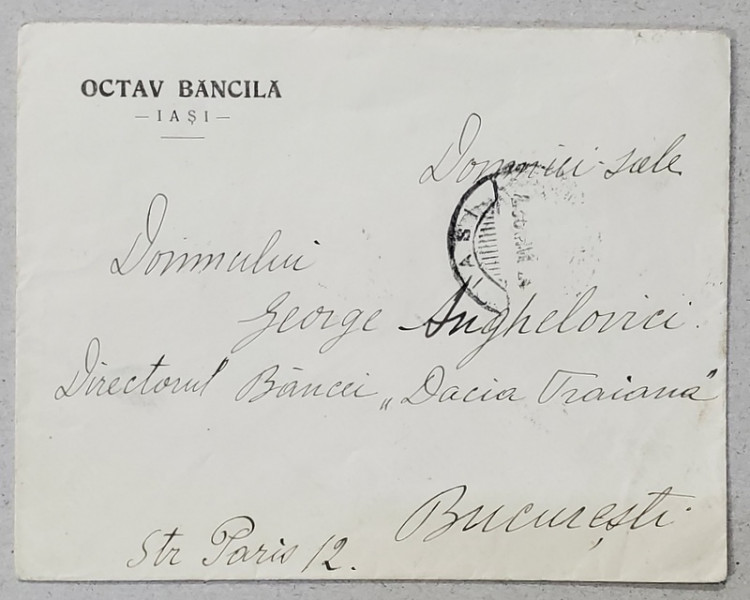 OCTAV BĂNCILĂ
— IAȘI —
Domniei-sale
IAȘI
Domnului
George Anghelovici
Directorul Băncei „Dacia Traiană”
București
Str Paris 12.